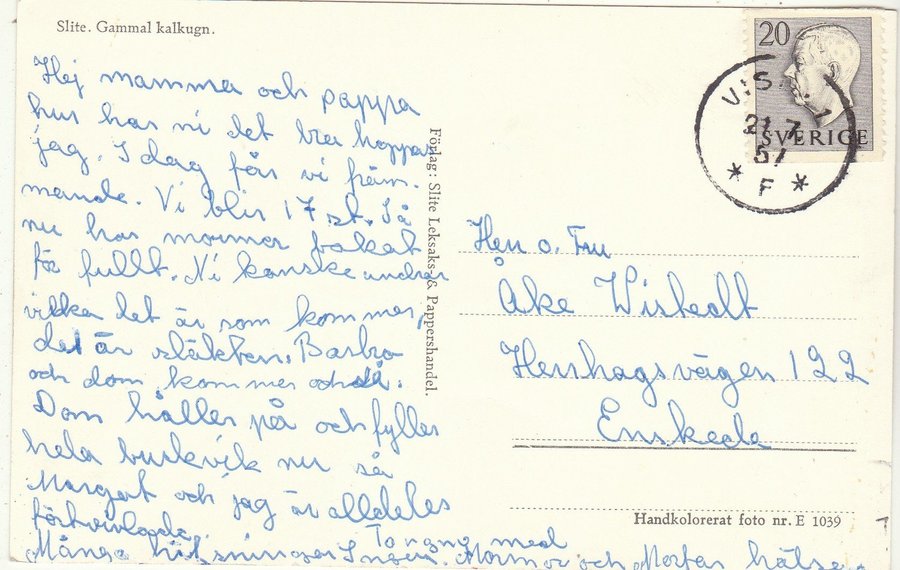 Slite. Gammal kalkugn.
Hej mamma och pappa
hur har ni det bra hoppas
jag. Idag får vi främ-
mande. Vi blir 17 st. Så
nu har mormor bakat
för fullt. Ni kanske undrar
vilka det är som kommer,
det är släkten. Barbro
och dom kommer också.
Dom håller på och fyller
hela burkvik nu så
Margot och jag är alldeles
förtvivlade.
Många hälsningar Inger. Mormor och Morfar hälsa
Torgny med
Förlag: Slite Leksaks- & Pappershandel.
20
SVERIGE
21 7
57
* F *
Herr o. Fru
Åke Wistedt
Herrhagsvägen 122
Enskede
Handkolorerat foto nr. E 1039